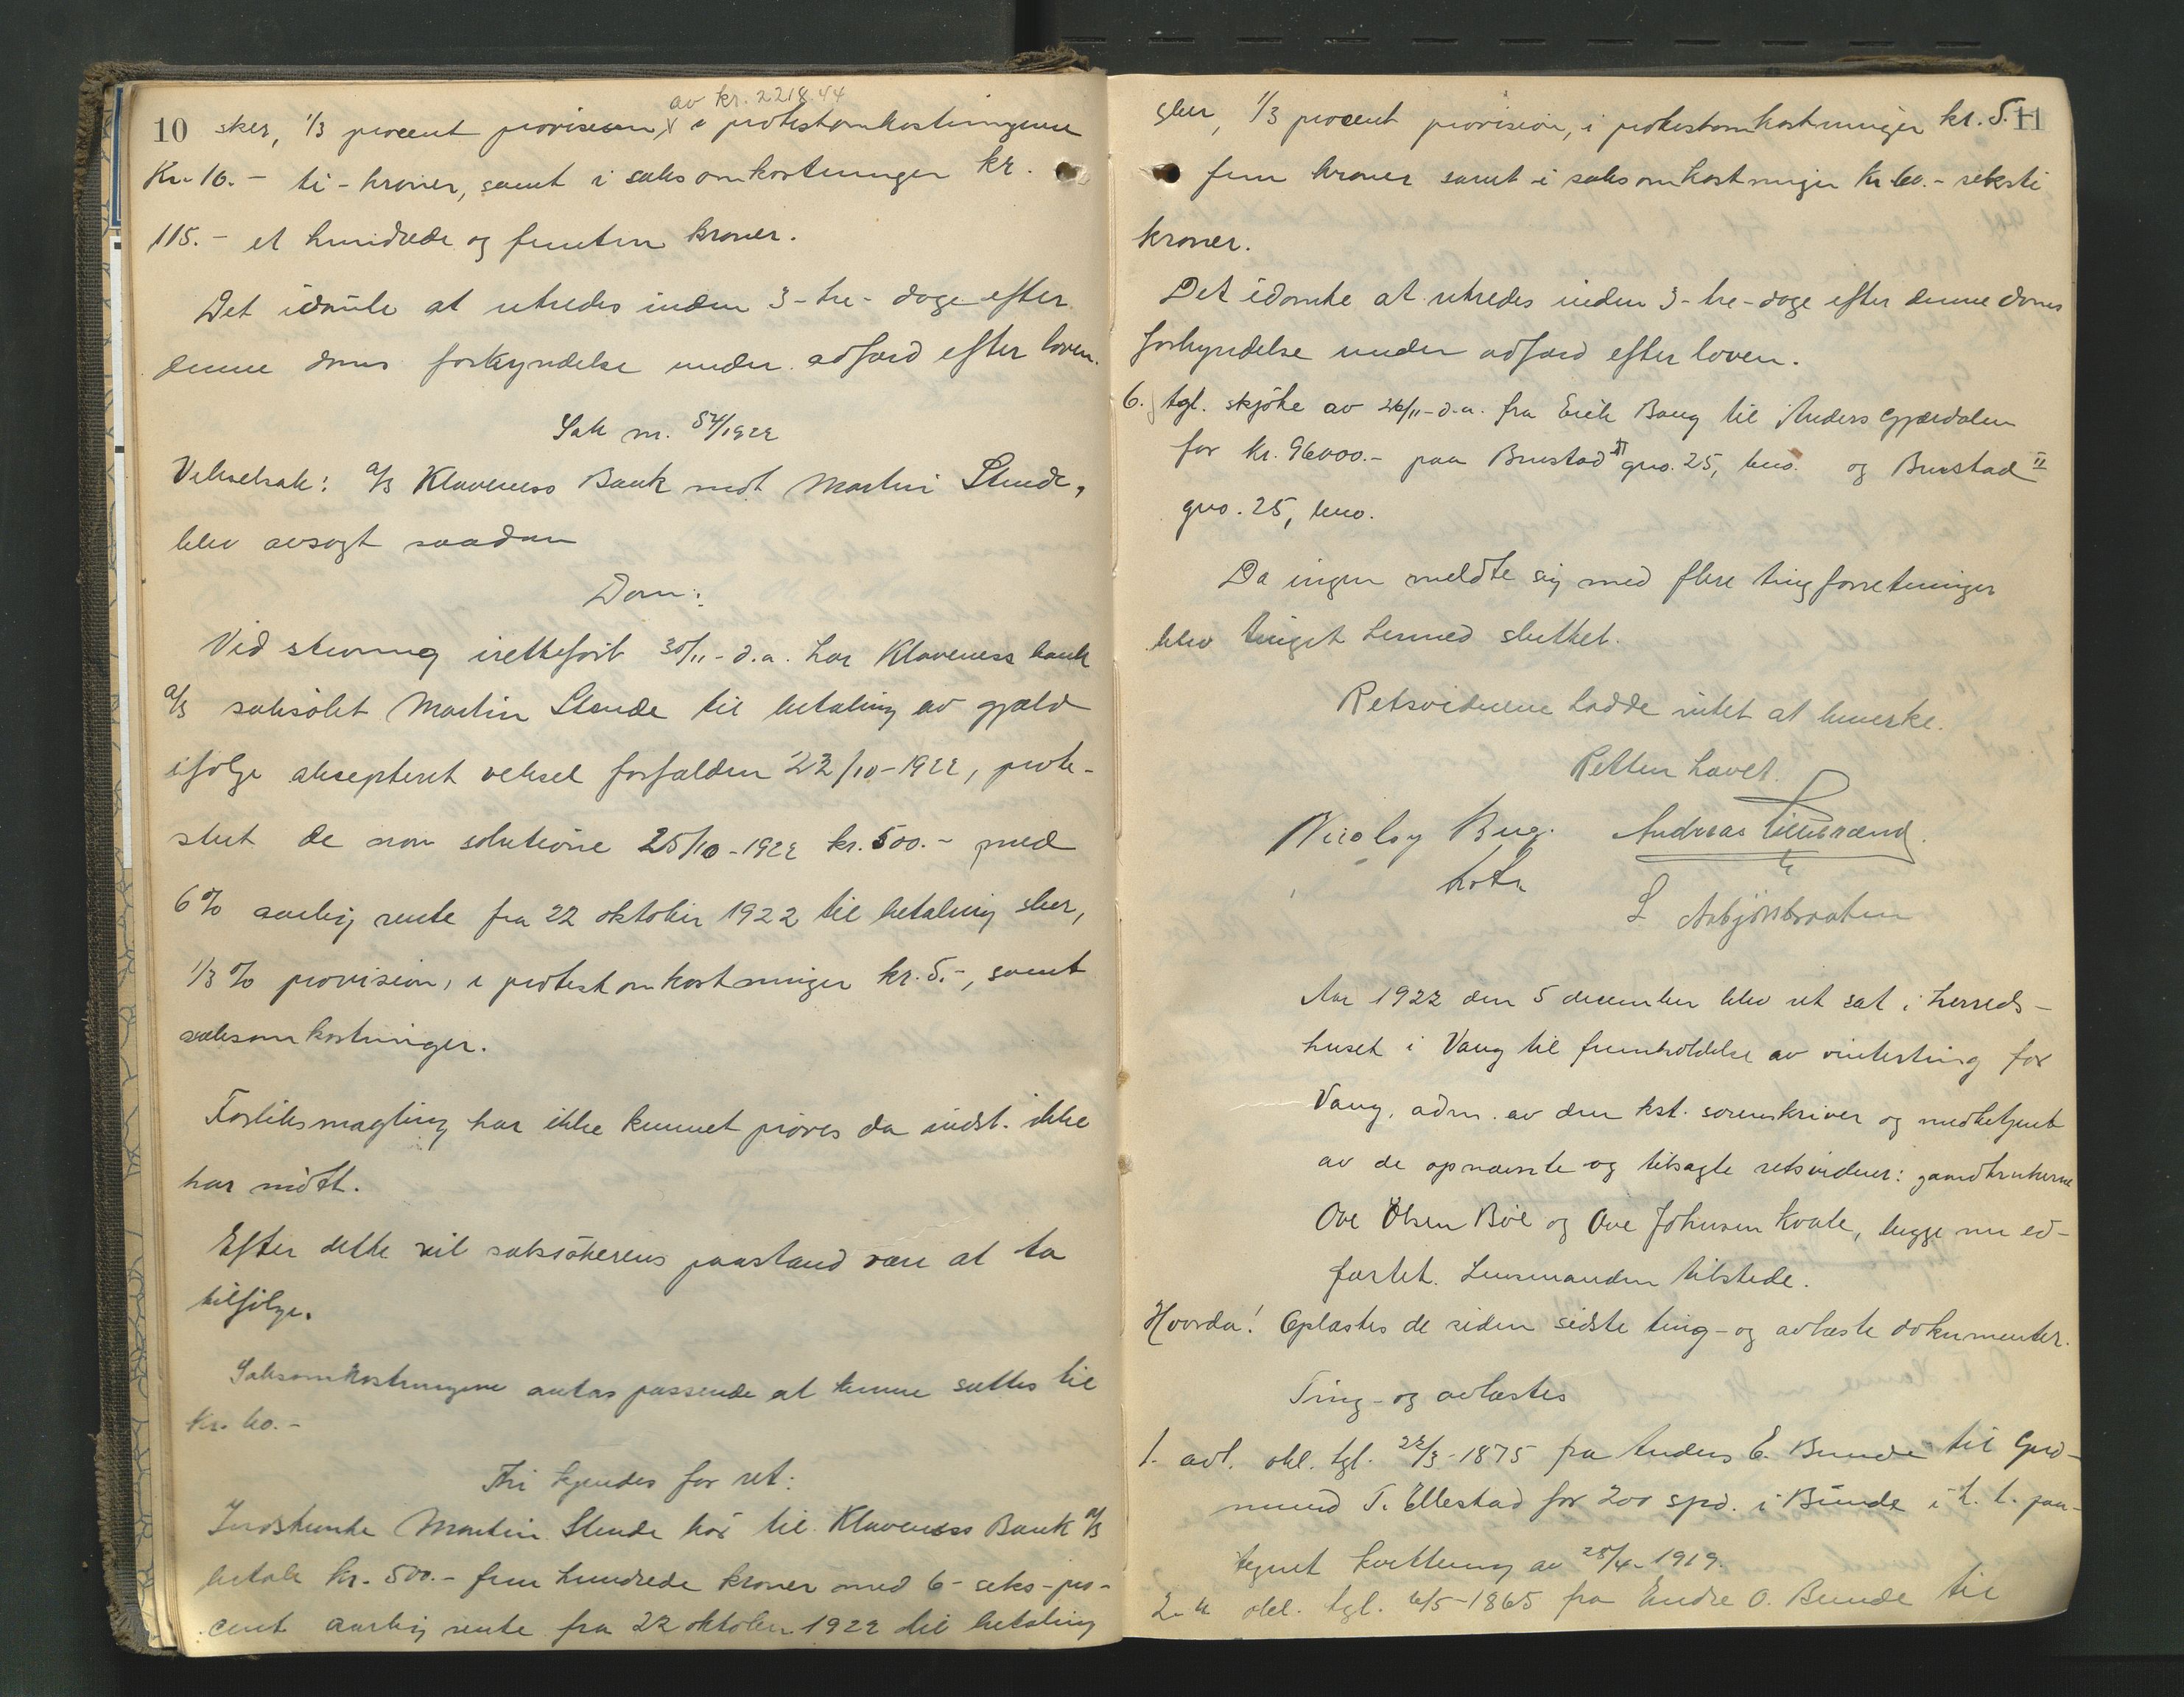 av kr. 2218.44
10 sker, 1/3 procent provision, i protestomkostningene
Kr. 10.- ti - kroner, samt i saksomkostninger kr.
115.- et hundrede og femten kroner.
Det idømte at utredes inden 3 - tre - dage efter
denne doms forkyndelse under adfærd efter loven.
Sak nr. 54/1922
Vekselsak: A/S Klaveness Bank mot Martin Stende,
blev avsagt saadan
Dom:
Ved stevning iretteført 30/11 - d.a. har Klaveness bank
A/S saksøkt Martin Stende til betaling av gjæld
ifølge akseptert veksel forfalden 22/10 - 1922, prote-
stert de non solutione 25/10 - 1922 kr. 500.- med
6% aarlig rente fra 22 oktober 1922 til betaling sker,
1/3 % provision, i protestomkostninger kr. 5.-, samt
saksomkostninger.
Forliksmægling har ikke kunnet prøves da indst. ikke
har møtt.
Efter dette vil saksøkerens paastand være at ta
tilfølge.
Saksomkostningene antas passende at kunne sættes til
kr. 60.-
Thi kjendes for ret:
Indstevnte Martin Stende bør til Klaveness Bank A/S
betale kr. 500.- fem hundrede kroner med 6 - seks - pro-
cent aarlig rente fra 22 oktober 1922 til betaling
sker, 1/3 procent provision, i protestomkostninger kr. 5.- 11
fem kroner samt i saksomkostninger kr 60.- seksti
kroner.
Det idømte at utredes inden 3 - tre - dage efter denne doms
forkyndelse under adfærd efter loven.
6. tgl. skjøte av 26/11 - d.a. fra Erik Bang til Anders Gjærdalen
for kr. 96000.- paa Brustad gno. 25, bno. og Brustad II
gno. 25, bno.
Da ingen meldte sig med flere tingforretninger
blev tinget hermed sluttet.
Retsvidnene hadde intet at bemerke.
Retten hævet.
Nicolay Bug. Andreas Lillebrænd.
kst.
L Asbjørnbraaten
Aar 1922 den 5 december blev ret sat i herreds-
huset i Vang til fremholdelse av vinterting for
Vang, adm. av den kst. sorenskriver og medbetjent
av de opnævnte og tilsagte retsvidner: gaardbrukerne
Ove Olsen Bøe og Ove Johnsen Kvale, begge nu ed-
fæstet. Lensmanden tilstede.
Hvorda! Oplæstes de siden sidste ting- og avlæste dokumenter.
Ting- og avlæstes
1. avl. obl. tgl. 22/3 - 1875 fra Anders E. Bunde til Gud-
mund T. Ellestad for 200 spd. i Bunde i h. t. paa-
tegnet kvittering av 28/4 - 1919.
2. " obl. tgl. 6/5 - 1865 fra Endre O. Bunde til